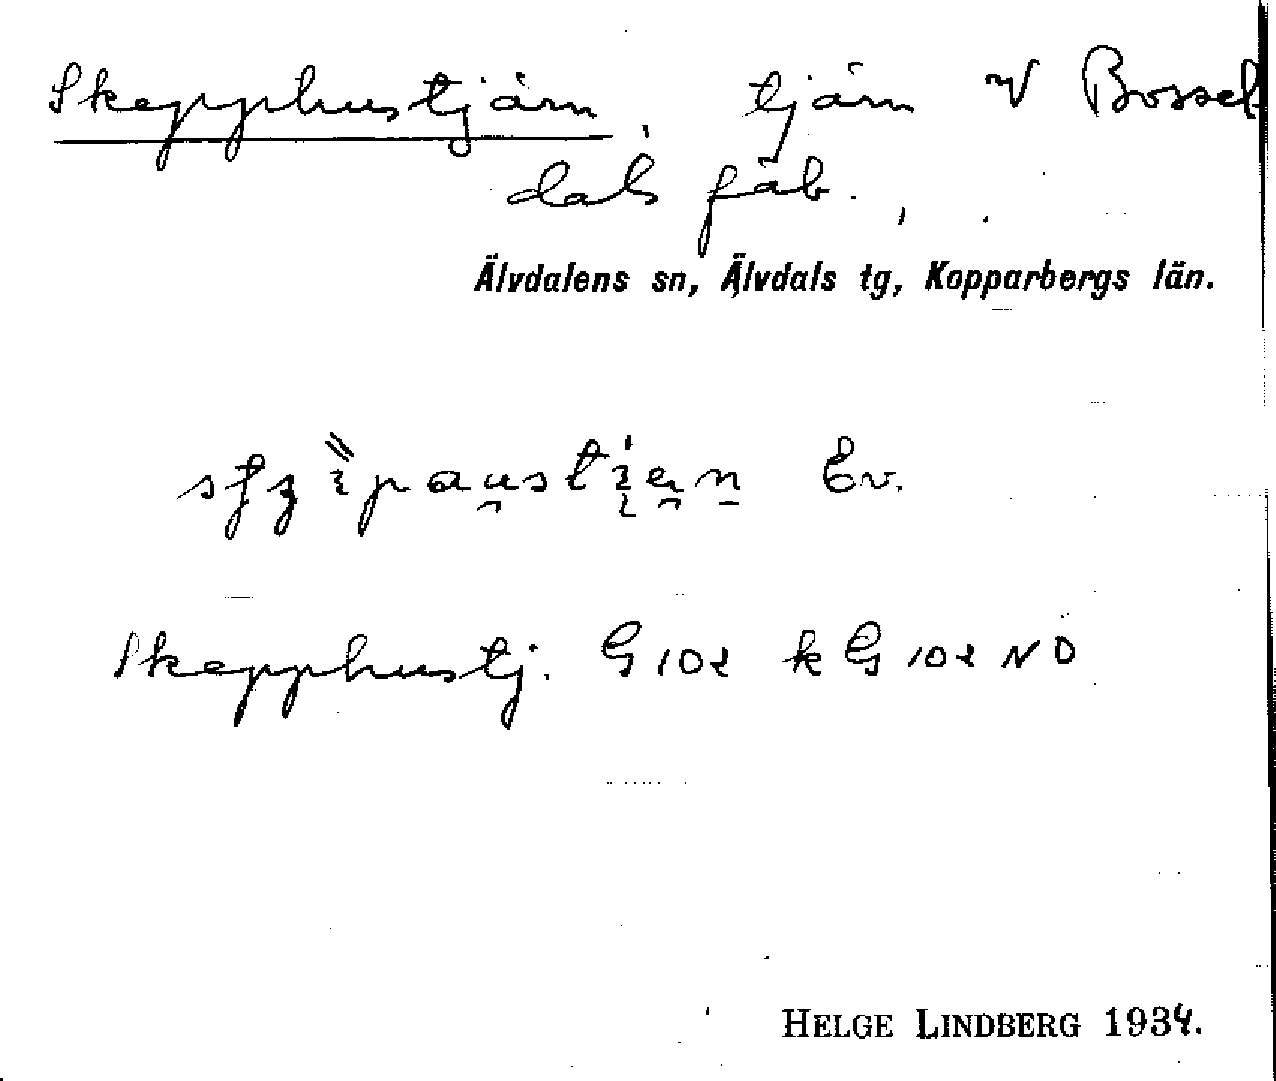 Skepphustjärn, tjärn V Bossel
dals fäb.
Älvdalens sn, Älvdals tg, Kopparbergs län.
Ev.
Skepphustj. G 102 k G 102 NO
HELGE LINDBERG 1934.